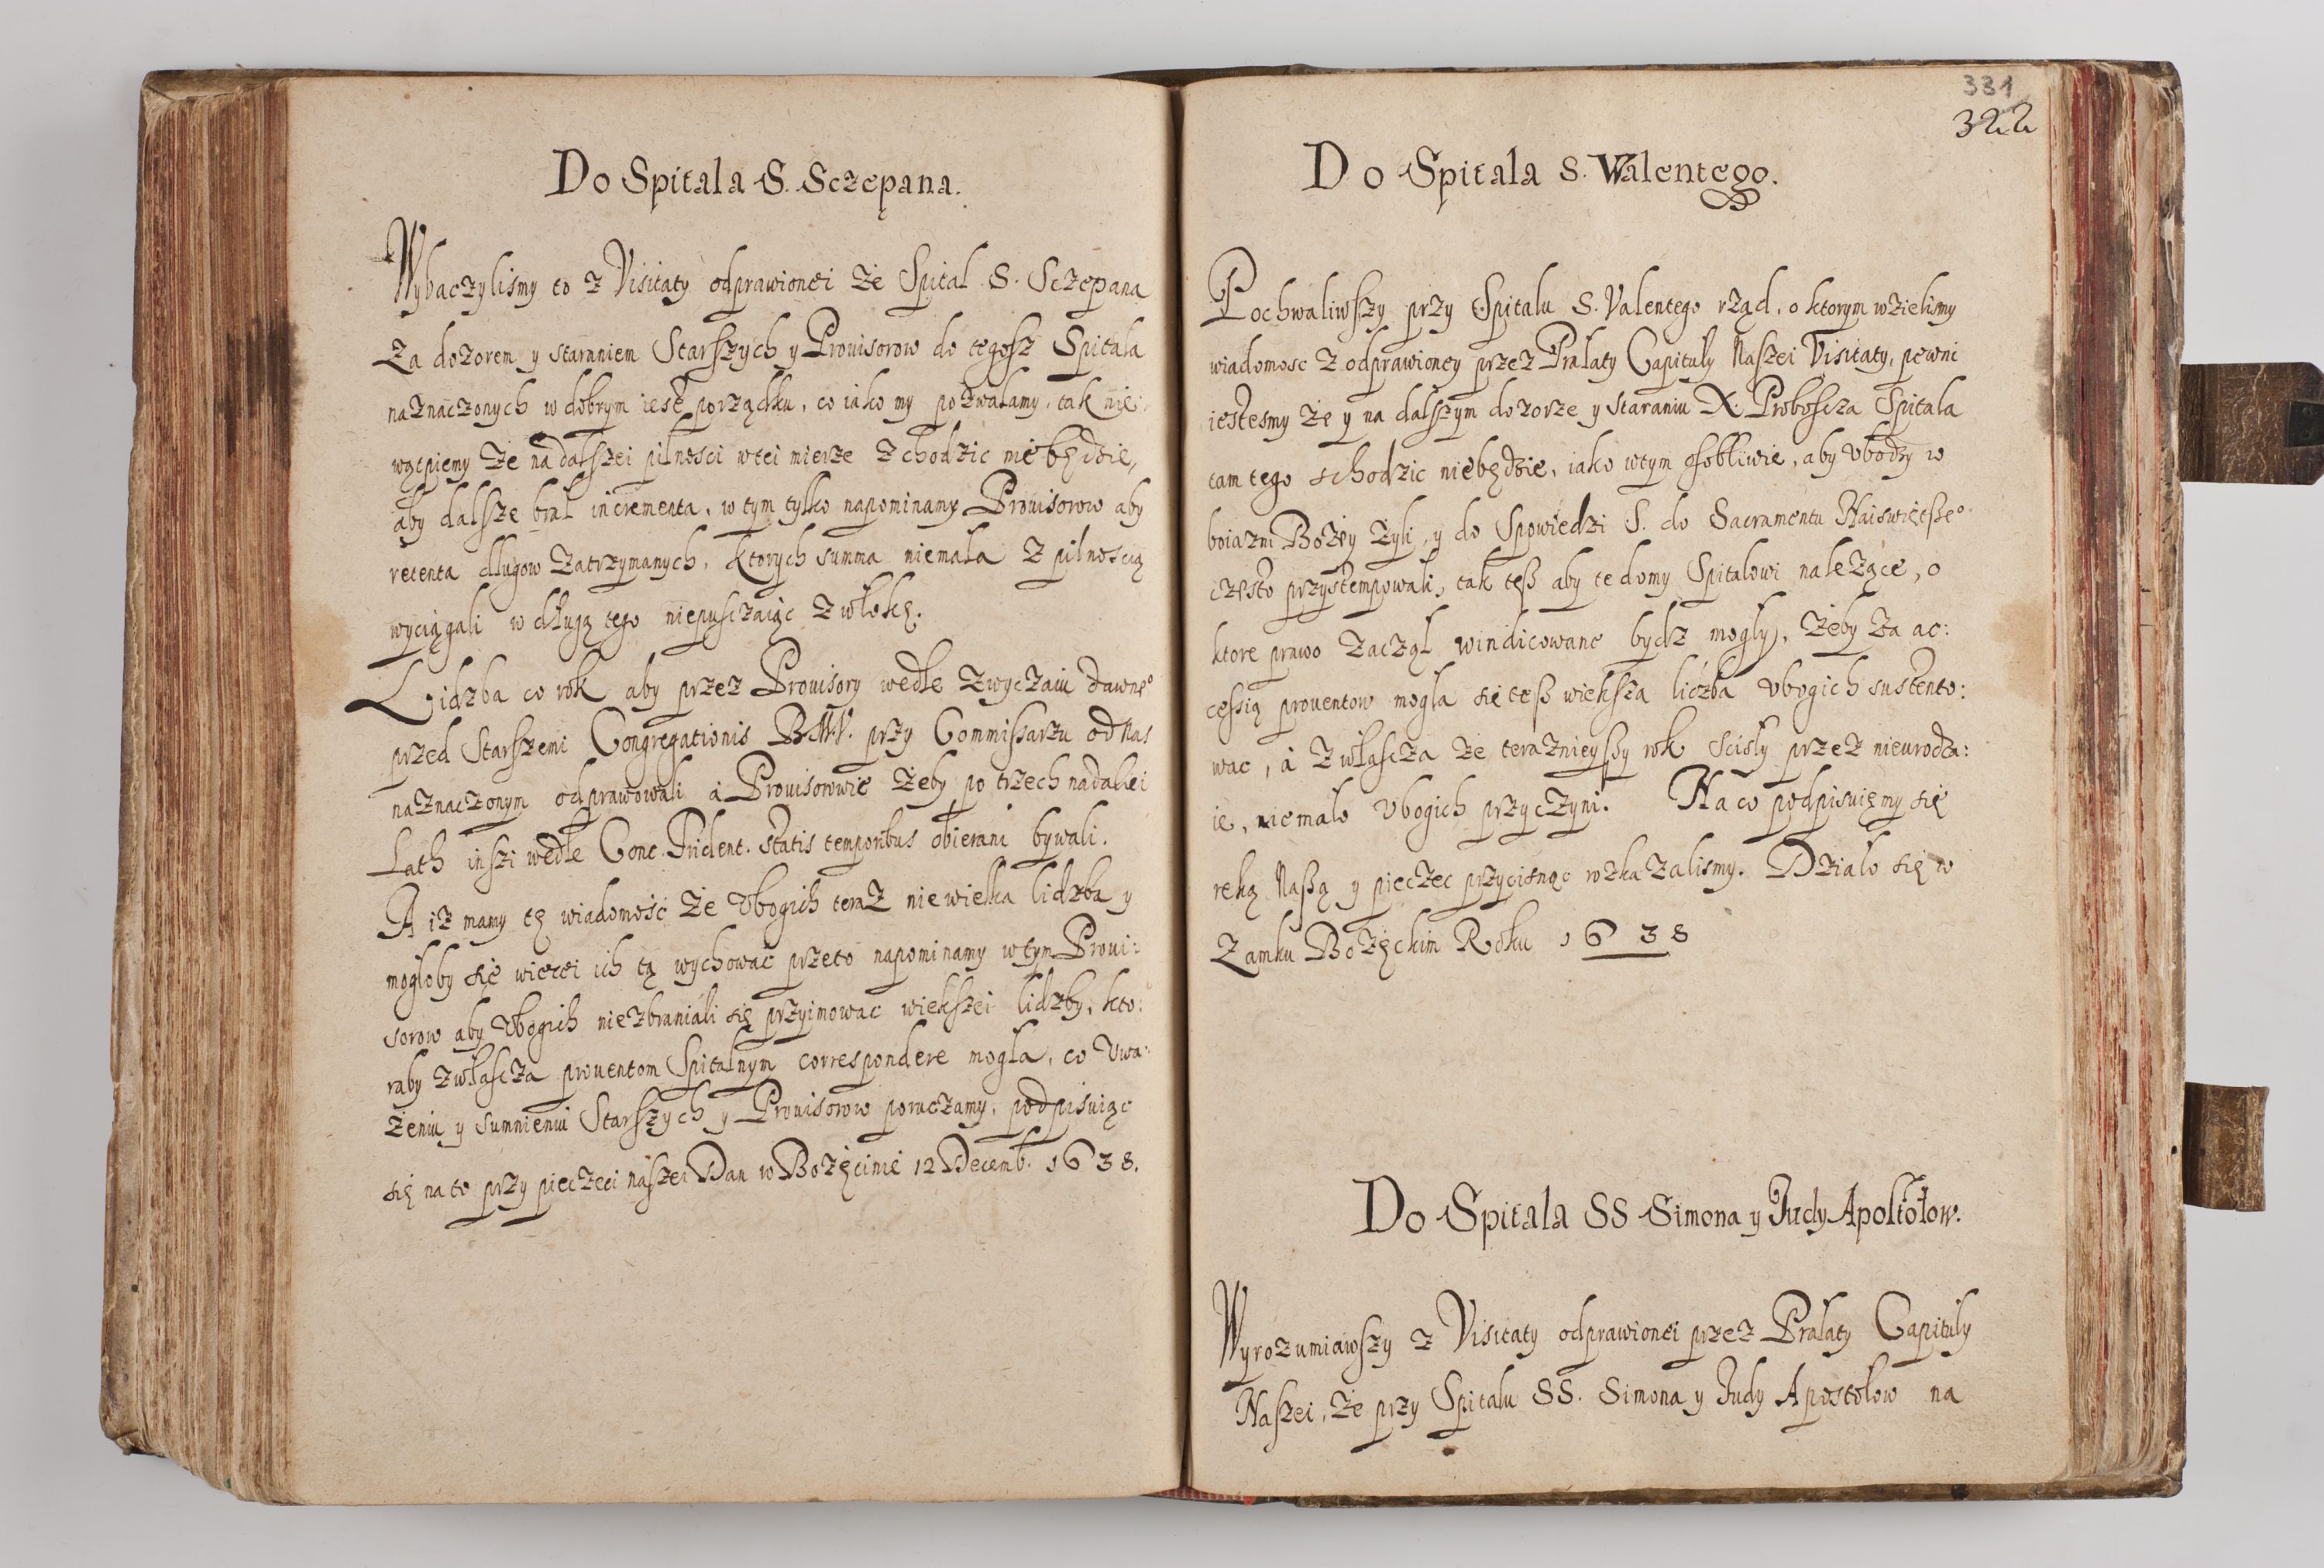 Do Spitala S. Sczepana.
Wybaczylismy to z Visitaty odprawionei że Spital S. Sczepana
za dozorem y staraniem Starszych y Prouisorow do tegosz Spitala
naznaczonych w dobrym iest porządku, co iako my pozwalamy, tak nie
wątpiemy że na dalszei pilnosci wtei mierze zchodzic niebędzie,
aby dalsze brał incrementa, w tym tylko napominamy Prouisorow aby
retenta długow zatrzymanych, ktorych summa niemała z pilnoscią
wyciągali w długą tego niepusczaiąc zwłokę.
Lidzba co rok aby przez Prouisory wedle zwyczaiu dawne⁰
przed Starszemi Congregationis B.M.V. przy Commissarzu od nas
naznaczonym odprawowali à Prouisorowie żeby po trzech nadalei
Lath inszi wedle Conc. Trident. statis temporibus obierani bywali.
A iz mamy tę wiadomość że vbogich teraz niewielka lidzba y
mogłoby się wiecei ich tą wychowac przeto napominamy wtym Proui:
sorow aby vbogich niezbraniali się przyimowac wiekszei lidzby, kto:
raby zwłascza prouentom Spitalnym correspondere mogła, co vwa:
żeniu y sumnieniu Starszych y Prouisorow poruczamy, podpisuiąc
się na to przy pieczeci naszei Dan w Bozęcinie 12 Decemb. 1638.
331
322
Do Spitala S. Walentego.
Pochwaliwszy przy Spitalu S. Valentego rząd, o ktorym wzielismy
wiadomosc z odprawioney przez Prałaty Capituły Naszei Visitaty, pewni
iestesmy że y na dalszym dozorze y staraniu X. Proboscza Spitala
tamtego schodzic niebędzie, iako wtym osobliwie, aby vbodzy w
boiazni Bożey żyli, y do Spowiedzi S. do Sacramentu Naiswiętsze⁰
często przystempowali, tak tesz aby te domy Spitalowi należące, o
ktore prawo zaczął windicowane bydz mogły, żeby za ac:
cessią prouentow mogla się tesz wieksza liczba vbogich sustento:
wac, à zwłascza że teraznieyszy rok scisły przez nieurodza:
ie, niemało vbogich przyczyni. Na co podpisuięmy się
ręką Naszą y pieczec przycisnąc rozkazalismy. Działo się w
Zamku Bozęckim Roku 1638
Do Spitala SS Simona y Judy Apostołow.
Wyrozumiawszy z Visitaty odprawionei przez Prałaty Capituly
Naszei, że przy Spitalu SS. Simona y Judy Apostołow na